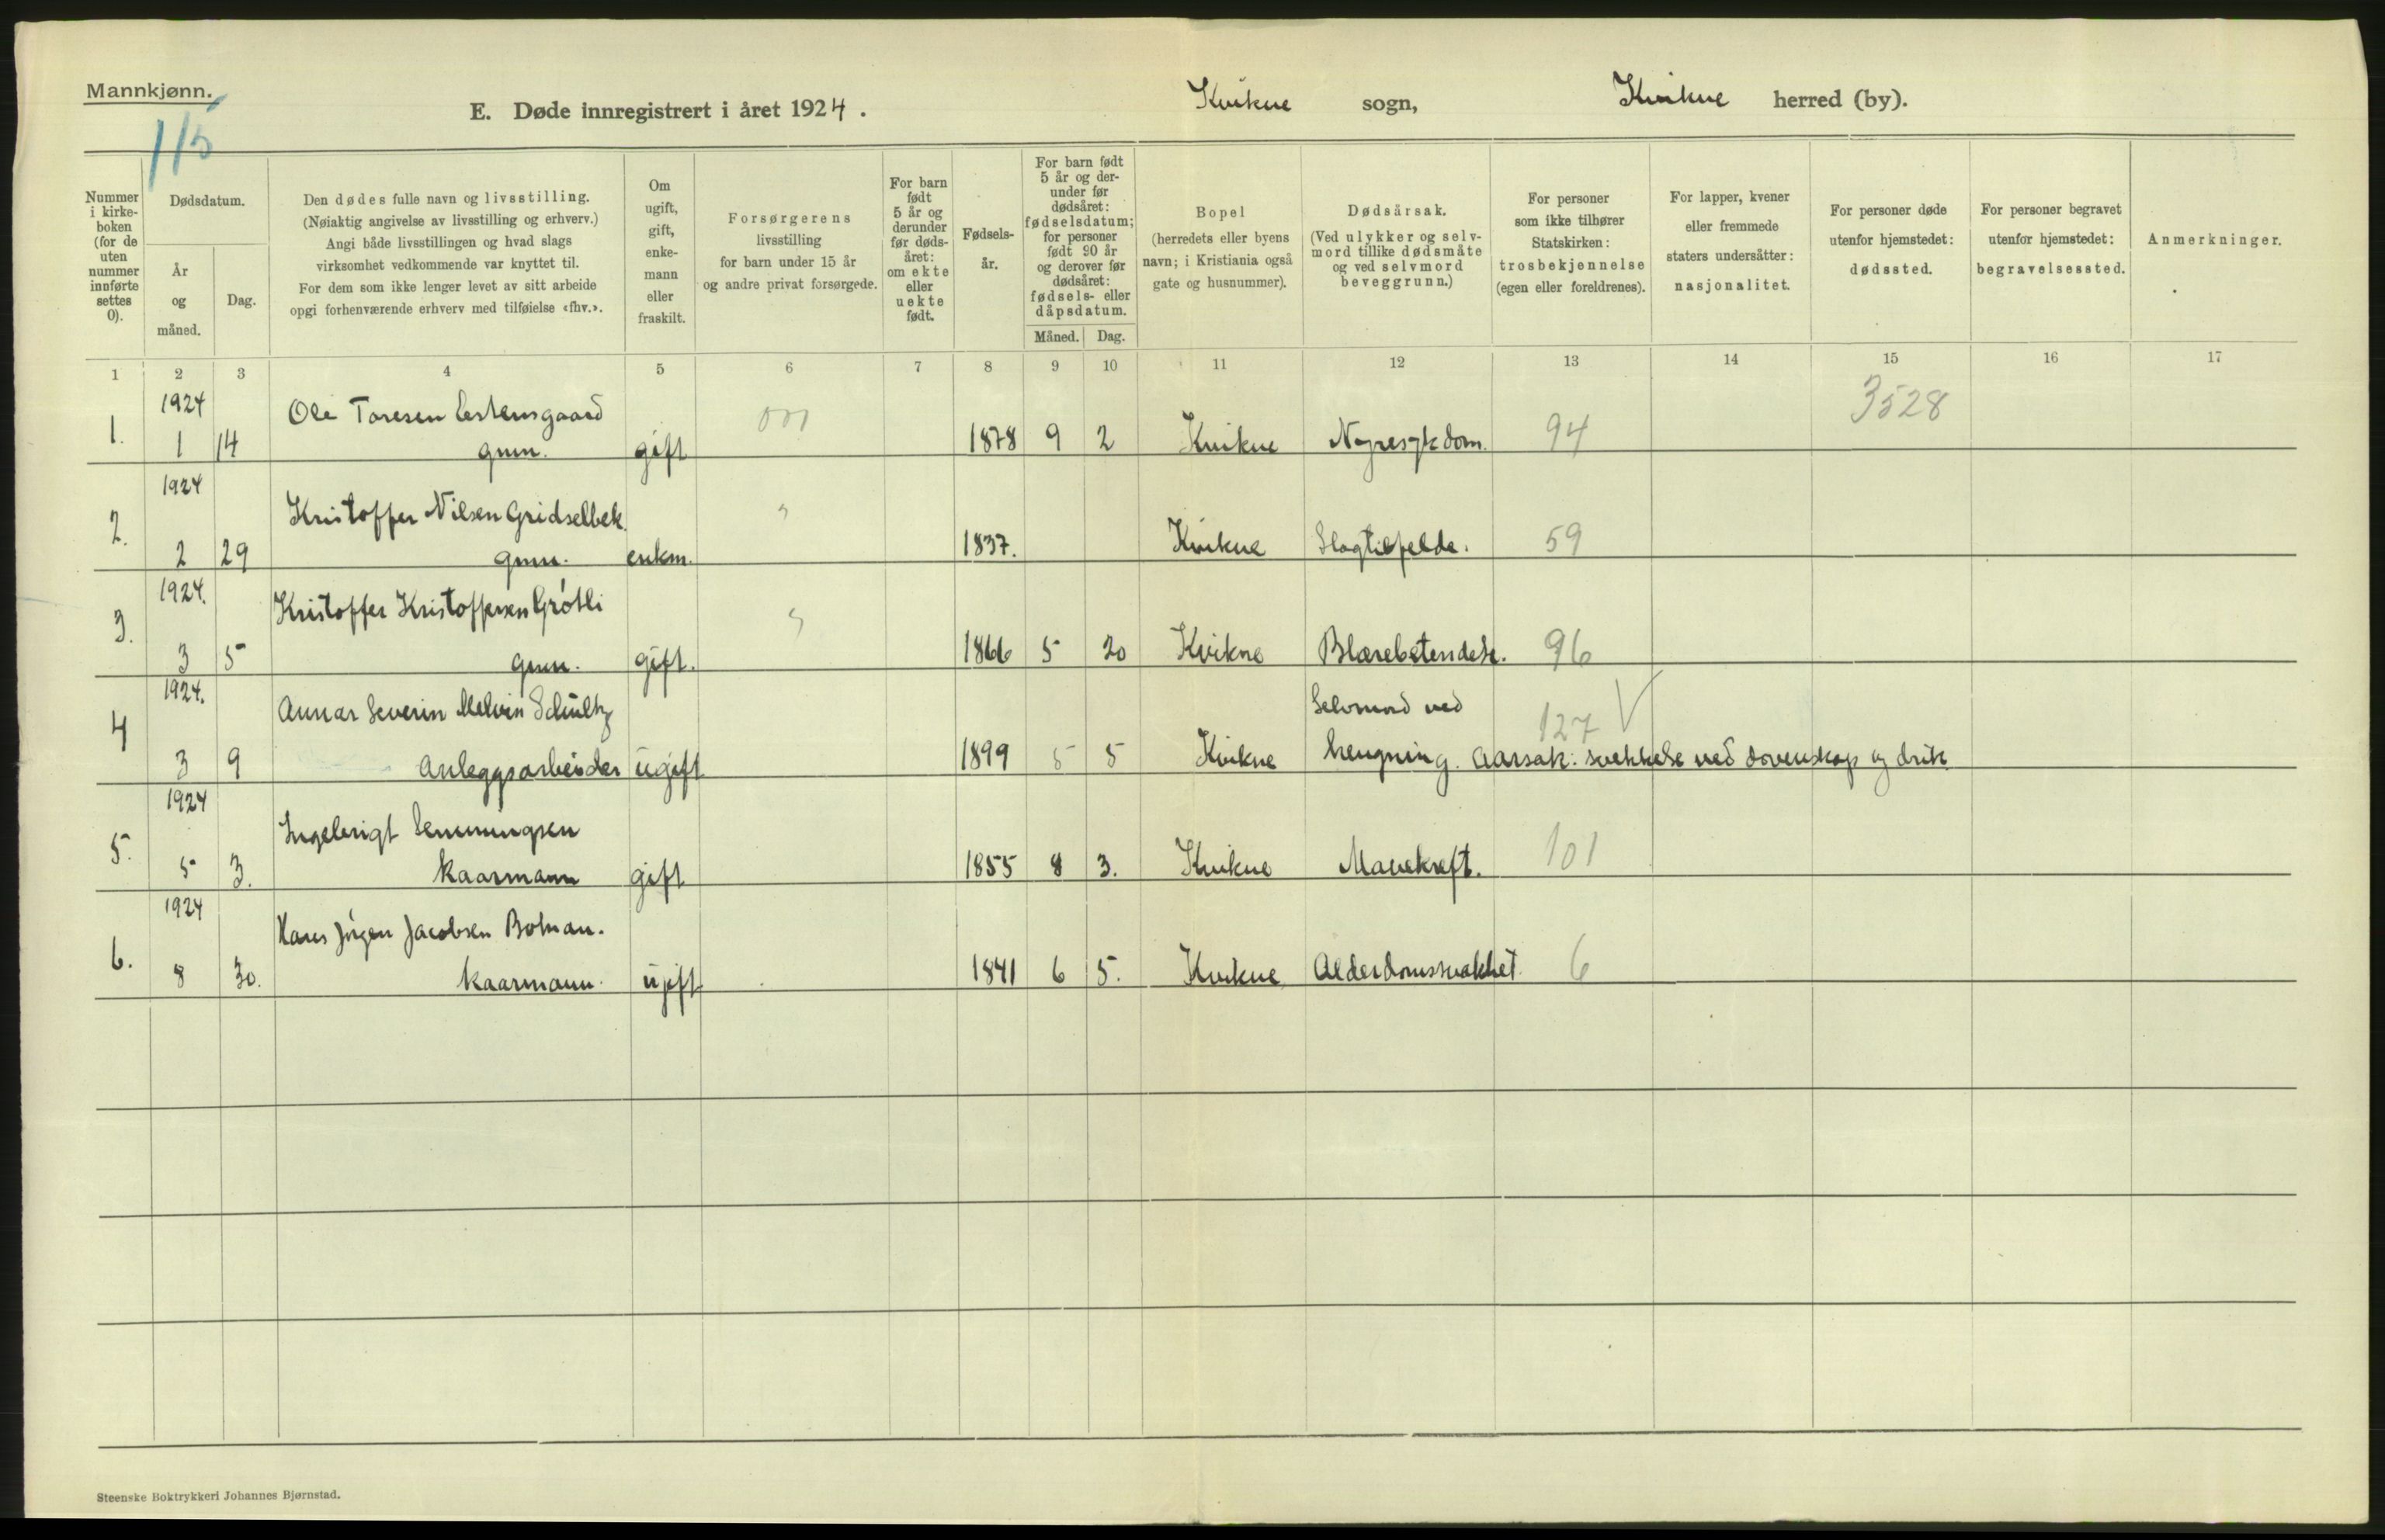 Mannkjønn.
1/5
E. Døde innregistrert i året 1924.
Kvikne sogn,
Kvikne herred (by).
Nummer i kirke-boken (for de uten nummer innførte settes 0).
Dødsdatum.
År og måned.
Dag.
Den dødes fulle navn og livsstilling.
(Nøiaktig angivelse av livsstilling og erhverv.)
Angi både livsstillingen og hvad slags
virksomhet vedkommende var knyttet til.
For dem som ikke lenger levet av sitt arbeide
opgi forhenværende erhverv med tilføielse «fhv.».
Om ugift, gift, enke-mann eller fraskilt.
Forsørgerens
livsstilling
for barn under 15 år
og andre privat forsørgede.
For barn født 5 år og derunder før døds-året: om ekte eller uekte født.
Fødsels-år.
For barn født 5 år og der-under før dødsåret: fødselsdatum; for personer født 90 år og derover før dødsåret: fødsels- eller dåpsdatum.
Måned. Dag.
Bopel
(herredets eller byens
navn; i Kristiania også
gate og husnummer).
Dødsårsak.
(Ved ulykker og selv-
mord tillike dødsmåte
og ved selvmord
beveggrunn.)
For personer
som ikke tilhører
Statskirken:
trosbekjennelse
(egen eller foreldrenes).
For lapper, kvener
eller fremmede
staters undersåtter:
nasjonalitet.
For personer døde
utenfor hjemstedet:
dødssted.
For personer begravet
utenfor hjemstedet:
begravelsessted.
Anmerkninger.
1 2 3 4 5 6 7 8 9 10 11 12 13 14 15 16 17
1924 Ole Toresen 3528
1. 1 14 gmn. gift 1878 9 2 Kvikne Nyresykdom. 94
1924 Kristoffer Nilsen Gridselbek
2. 2 29 gmn. enkm. 1837. Kvikne Slagtilfelde. 59
1924. Kristoffer Kristoffersen Grötli
3. 3 5 gmn. gift. 1866 5 20 Kvikne Blærebetendelse. 96
1924. Severin Melvin Schultz Selvmord ved 127 V
4 3 9 Anleggsarbeider ugift 1899 5 5 Kvikne hengning. Aarsak: svekkelse ved dovenskap og drik
1924 Ingebrigt Semmingsen
5. 5 3. Kaarmann gift 1855 8 3. Kvikne Mavekreft. 101
1924 Hans Jörgen Jacobsen
6. 8 30. Kaarmann. ugift 1841 6 5. Kvikne Alderdomssvakhet 6
Steenske Boktrykkeri Johannes Bjørnstad.